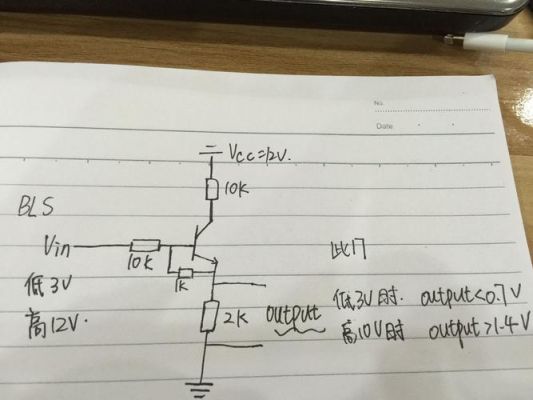 No.
Date
Vcc=12V.
10K
BLS
Vin
10K
1K
低3V
高12V.
2K
output
此门
低3V时. output<0.7V
高10V时 output>1.4V